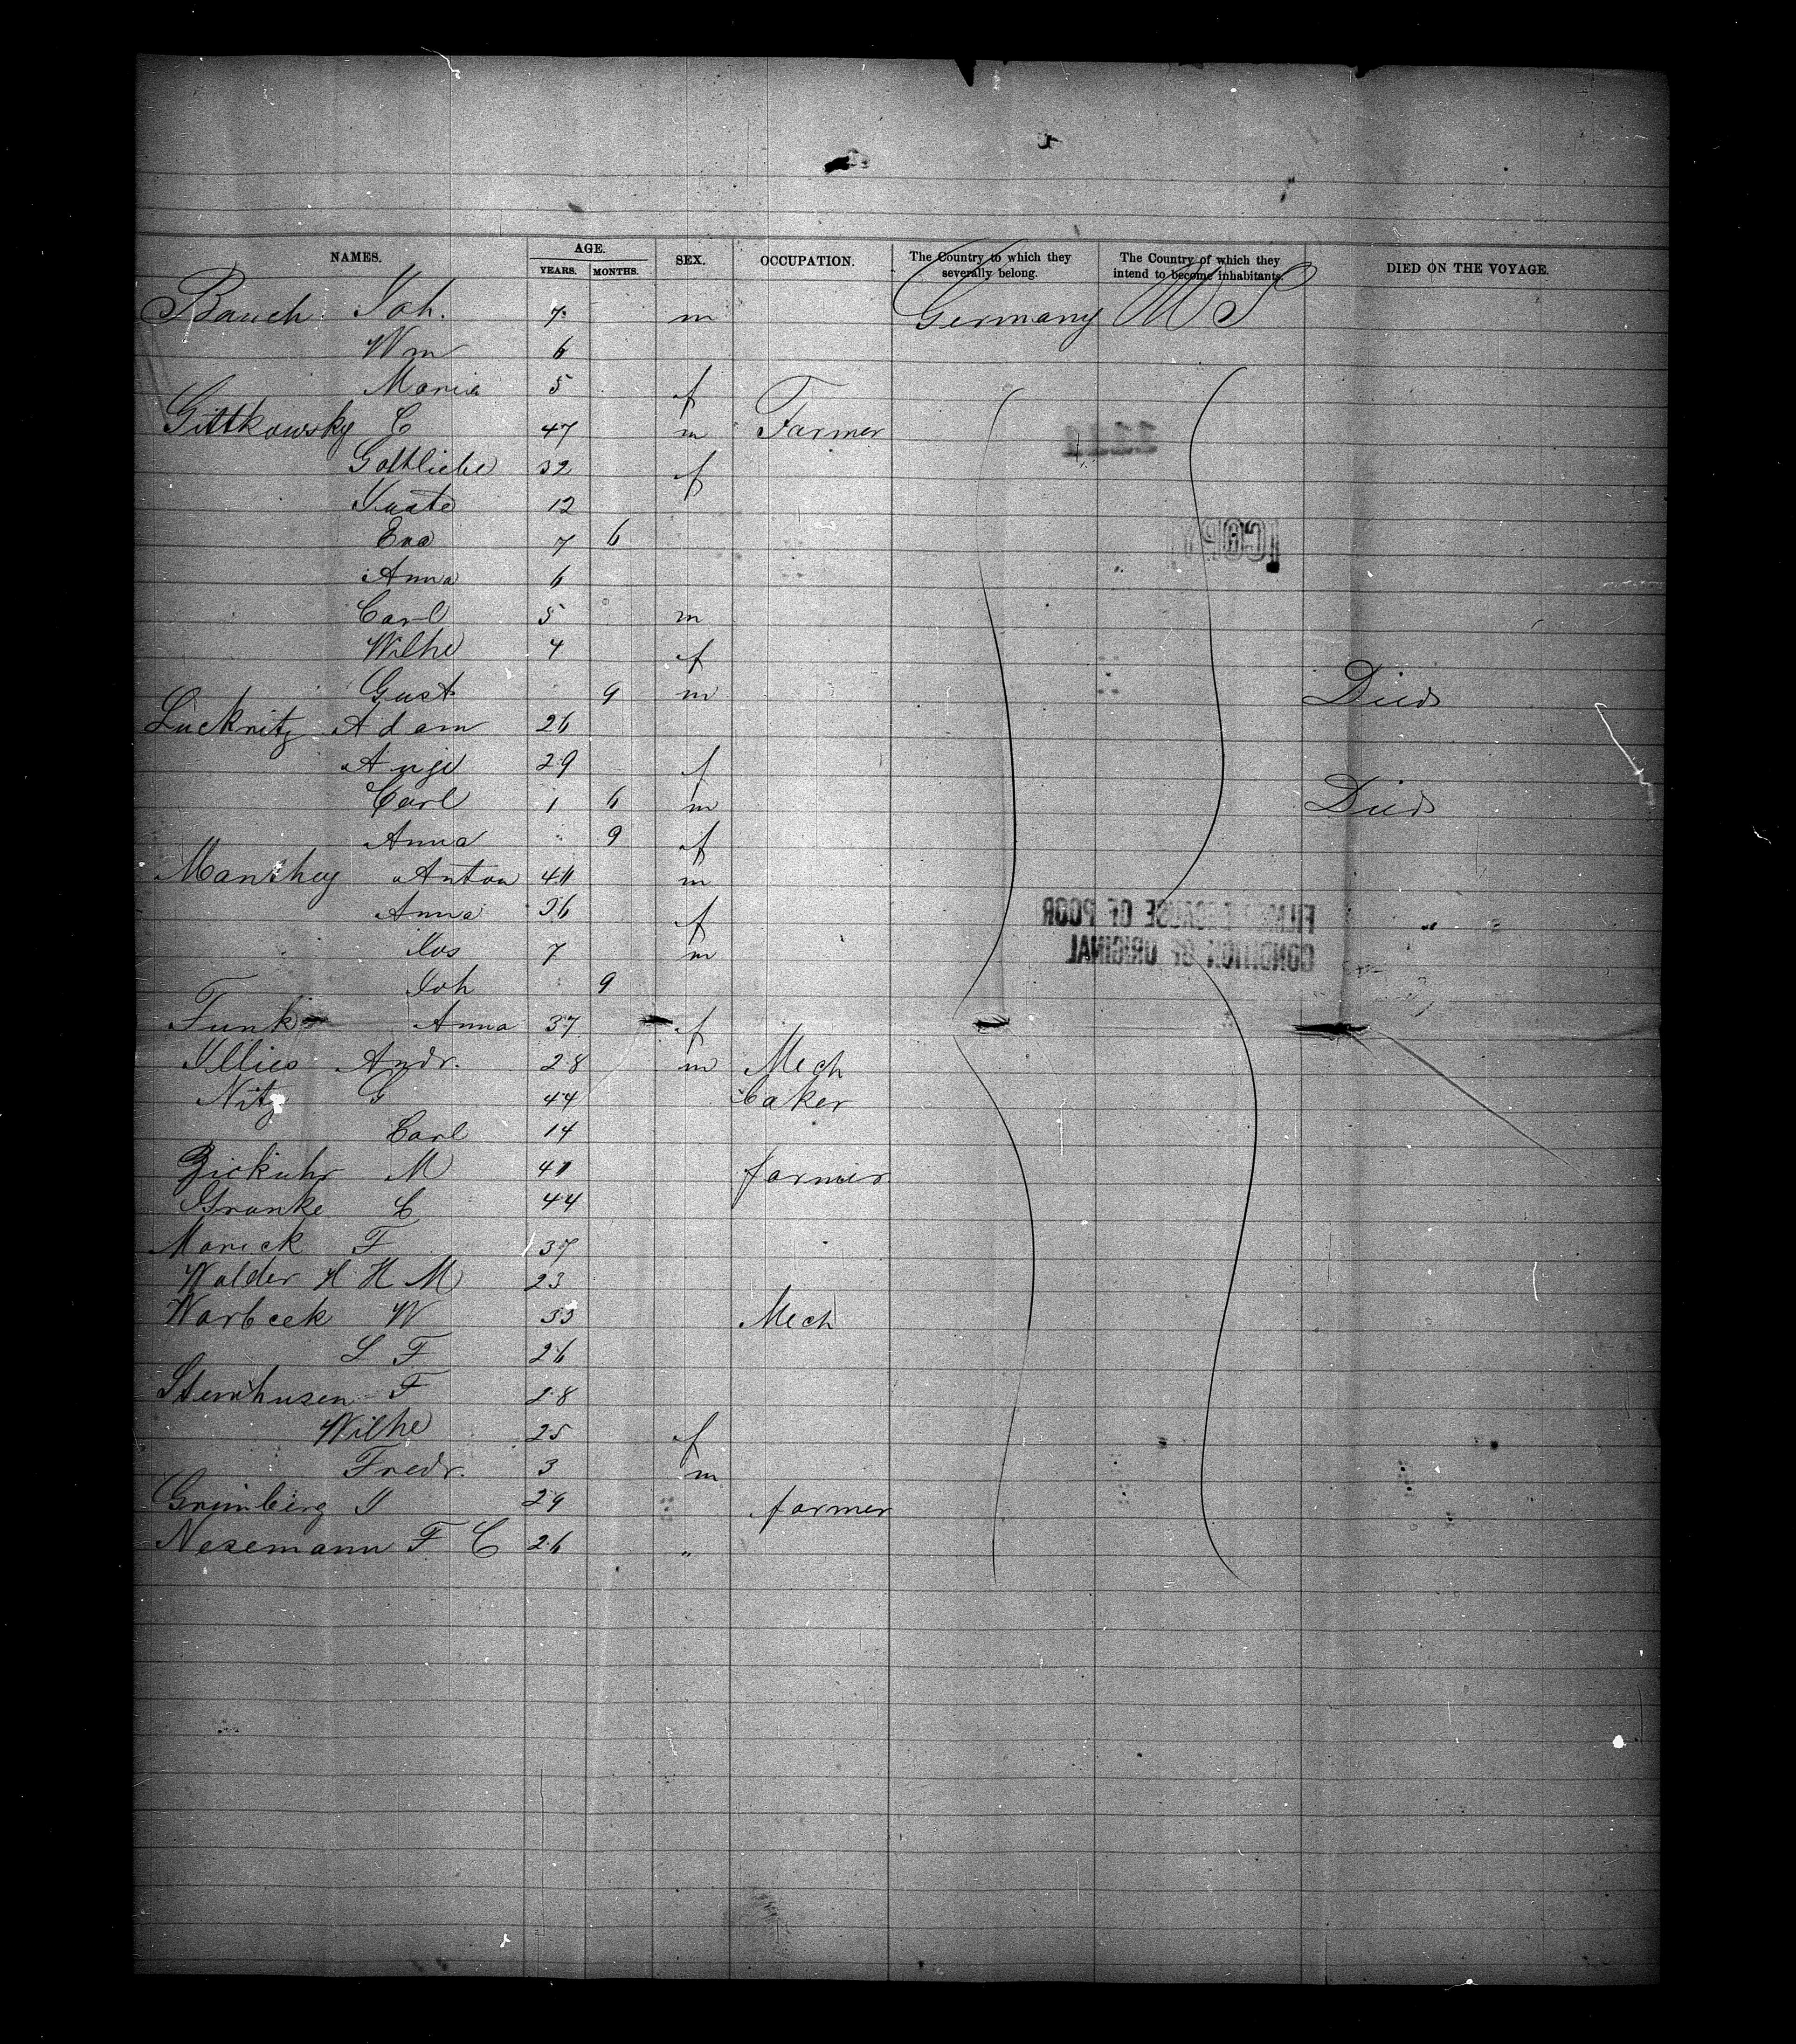 NAMES. AGE. YEARS. MONTHS. SEX. OCCUPATION. The Country to which they severally belong. The Country of which they intend to become inhabitants. DIED ON THE VOYAGE.
Bauch Joh. 7 m Germany U S
Wm 6
Maria 5 f
Gittkowsky C 47 m Farmer
Gottliebe 32 f
12
Eva 7 6
Anna 6
Carl 5 m
Wilhe 4 f
Gust 9 m Died
Lucknitz Adam 26
Anje 29 f
Carl 1 6 m Died
Anna " 9 f
Manthey Anton 41 m
Anna 36 f
Jos 7 m
Joh 9
FILMED BECAUSE OF POOR
CONDITION OF ORIGINAL
Funk Anna 37 f
Illies Andr. 28 m Mech
Nitz G 44 baker
Carl 14
Zickuhr M 41 farmer
Granke C 44
Marick F 37
Walder H H M 23
Warbeck W 33 Mech
S F 26
Sternhusen F 28
Wilhe 25 f
Fredr. 3 m
Grimberg J 29 farmer
Nesemann F C 26 "